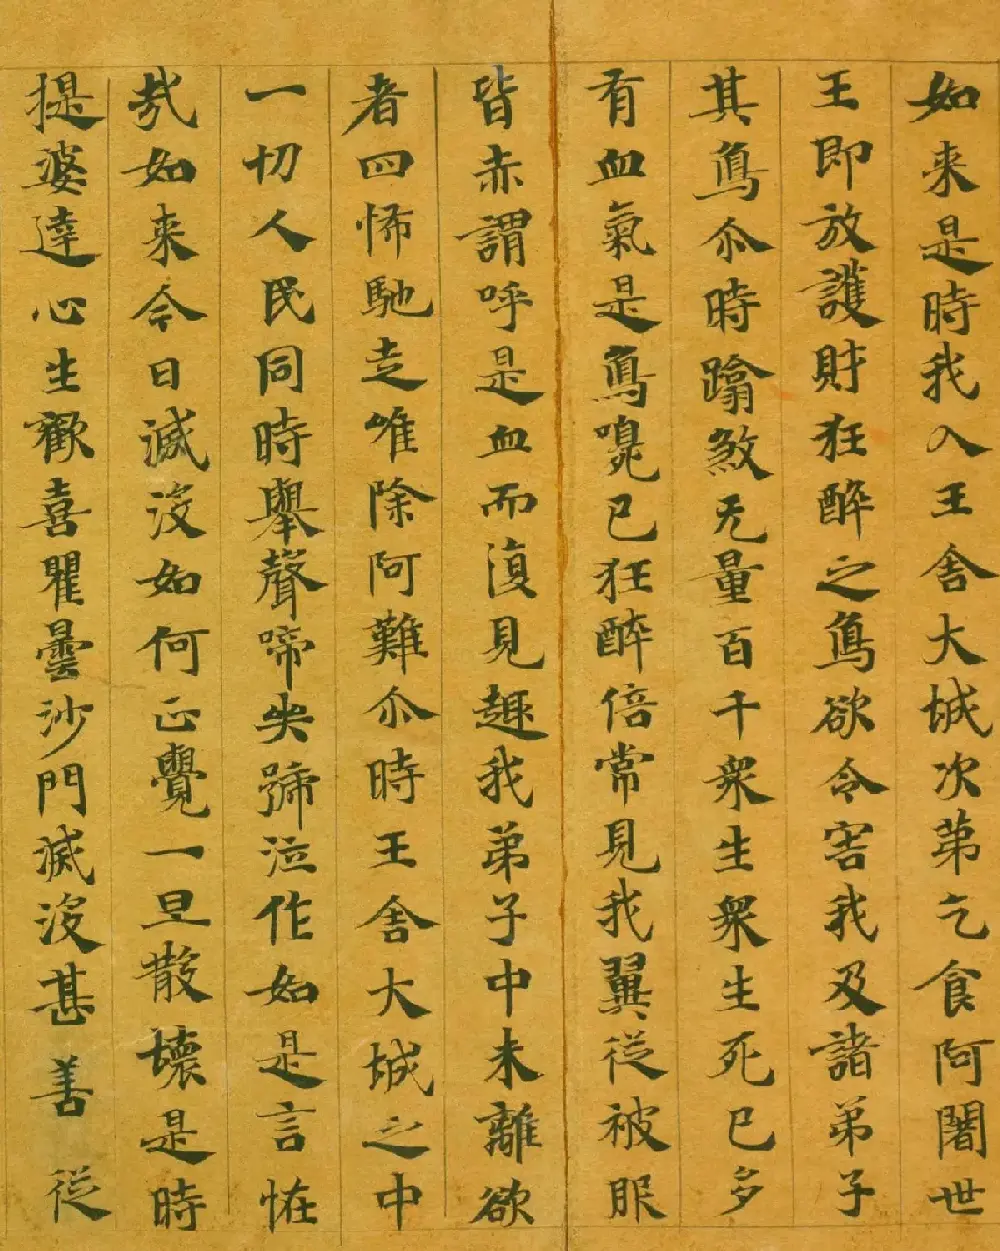 如来是時我入王舍大城次第乞食阿闍世
王即放護財狂醉之鳥欲令害我及諸弟子
其鳥尒時蹹煞无量百千衆生衆生死已多
有血氣是鳥嗅已狂醉倍常見我翼從被服
皆赤謂呼是血而復見趣我弟子中未離欲
者四怖馳走唯除阿難尒時王舍大城之中
一切人民同時舉聲啼哭號泣作如是言恠
哉如来今日滅沒如何正覺一旦散壞是時
提婆達心生歡喜瞿曇沙門滅沒甚善從